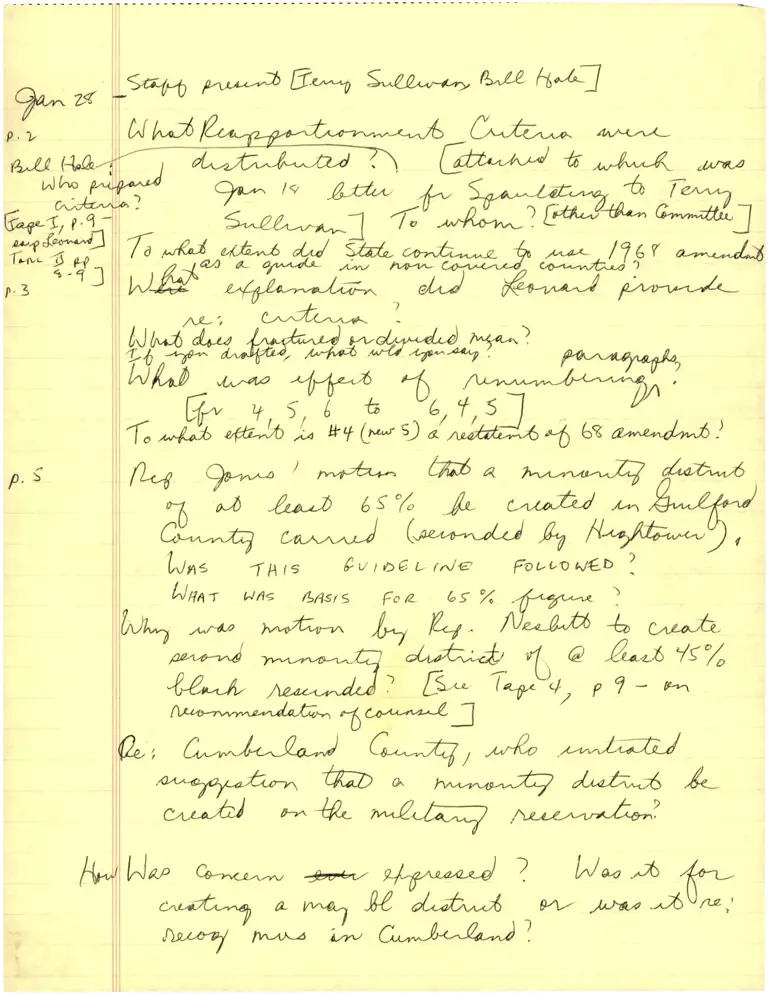 Jan 28 - Staff present [Terry Sullivan, Bill Hale]
p. 2
What Reapportionment Criteria were
distributed? [attached to which was
Jan 18 letter fr Spaulding to Terry
Sullivan] To whom? [other than Committee]
Bill Hale:
Who prepared
criteria?
[Tape I, p. 9 -
Leonard]
Tape II pp
8-9]
To what extent did State continue to use 1968 amendmt
as a guide in non covered counties?
p. 3
What explanation did Leonard provide
re: criteria?
What does fractured or divided mean?
If you drafted, what wld you say?
What was effect of renumbering paragraphs,
[fr 4, 5, 6 to 6, 4, 5]
To what extent is #4 (new 5) a restatemt of 68 amendmt?
p. 5
Rep. Jones' motion that a minority district
of at least 65% be created in Guilford
County carried (seconded by Hightower).
WAS THIS GUIDELINE FOLLOWED?
WHAT WAS BASIS FOR 65% figure?
Why was motion by Rep. Nesbitt to create
second minority district of @ least 45%
black rescinded? [See Tape 4, p 9 - on
recommendation of counsel]
Re: Cumberland County, who initiated
suggestion that a minority district be
created on the military reservation?
How Was concern expressed? Was it for
creating a maj bl district or was it re:
recog mvs in Cumberland?